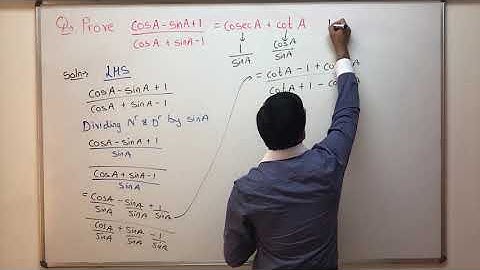 Q. Prove (cosA - sinA + 1)/(cosA + sinA - 1) = cosecA + cot A
1/sinA cosA/sinA
Soln:- LHS
(cosA - sinA + 1)/(cosA + sinA - 1)
Dividing Nʳ & Dʳ by sinA
((cosA - sinA + 1)/sinA)/((cosA + sinA - 1)/sinA)
(cosA/sinA - sinA/sinA + 1/sinA)/(cosA/sinA + sinA/sinA - 1/sinA)
= (cotA - 1 + A)/(cotA + 1 -